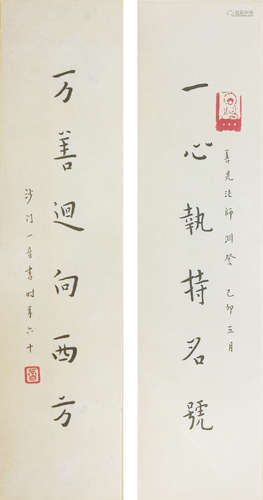 法師 己卯三月
一心執持名號
万善迴向西方
沙門一音書时年六十